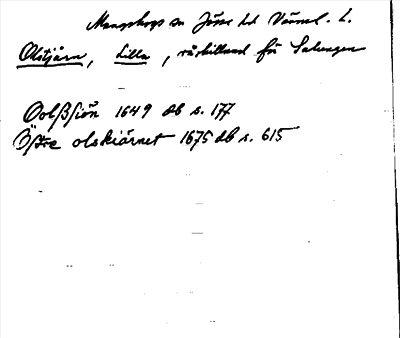 Mangskogs sn Jösse hd Värml. L.
Olstjärn, Lilla, för Salungen
Oolßsiön 1649 db s. 177
Östre olskiärnet 1675 db s. 615